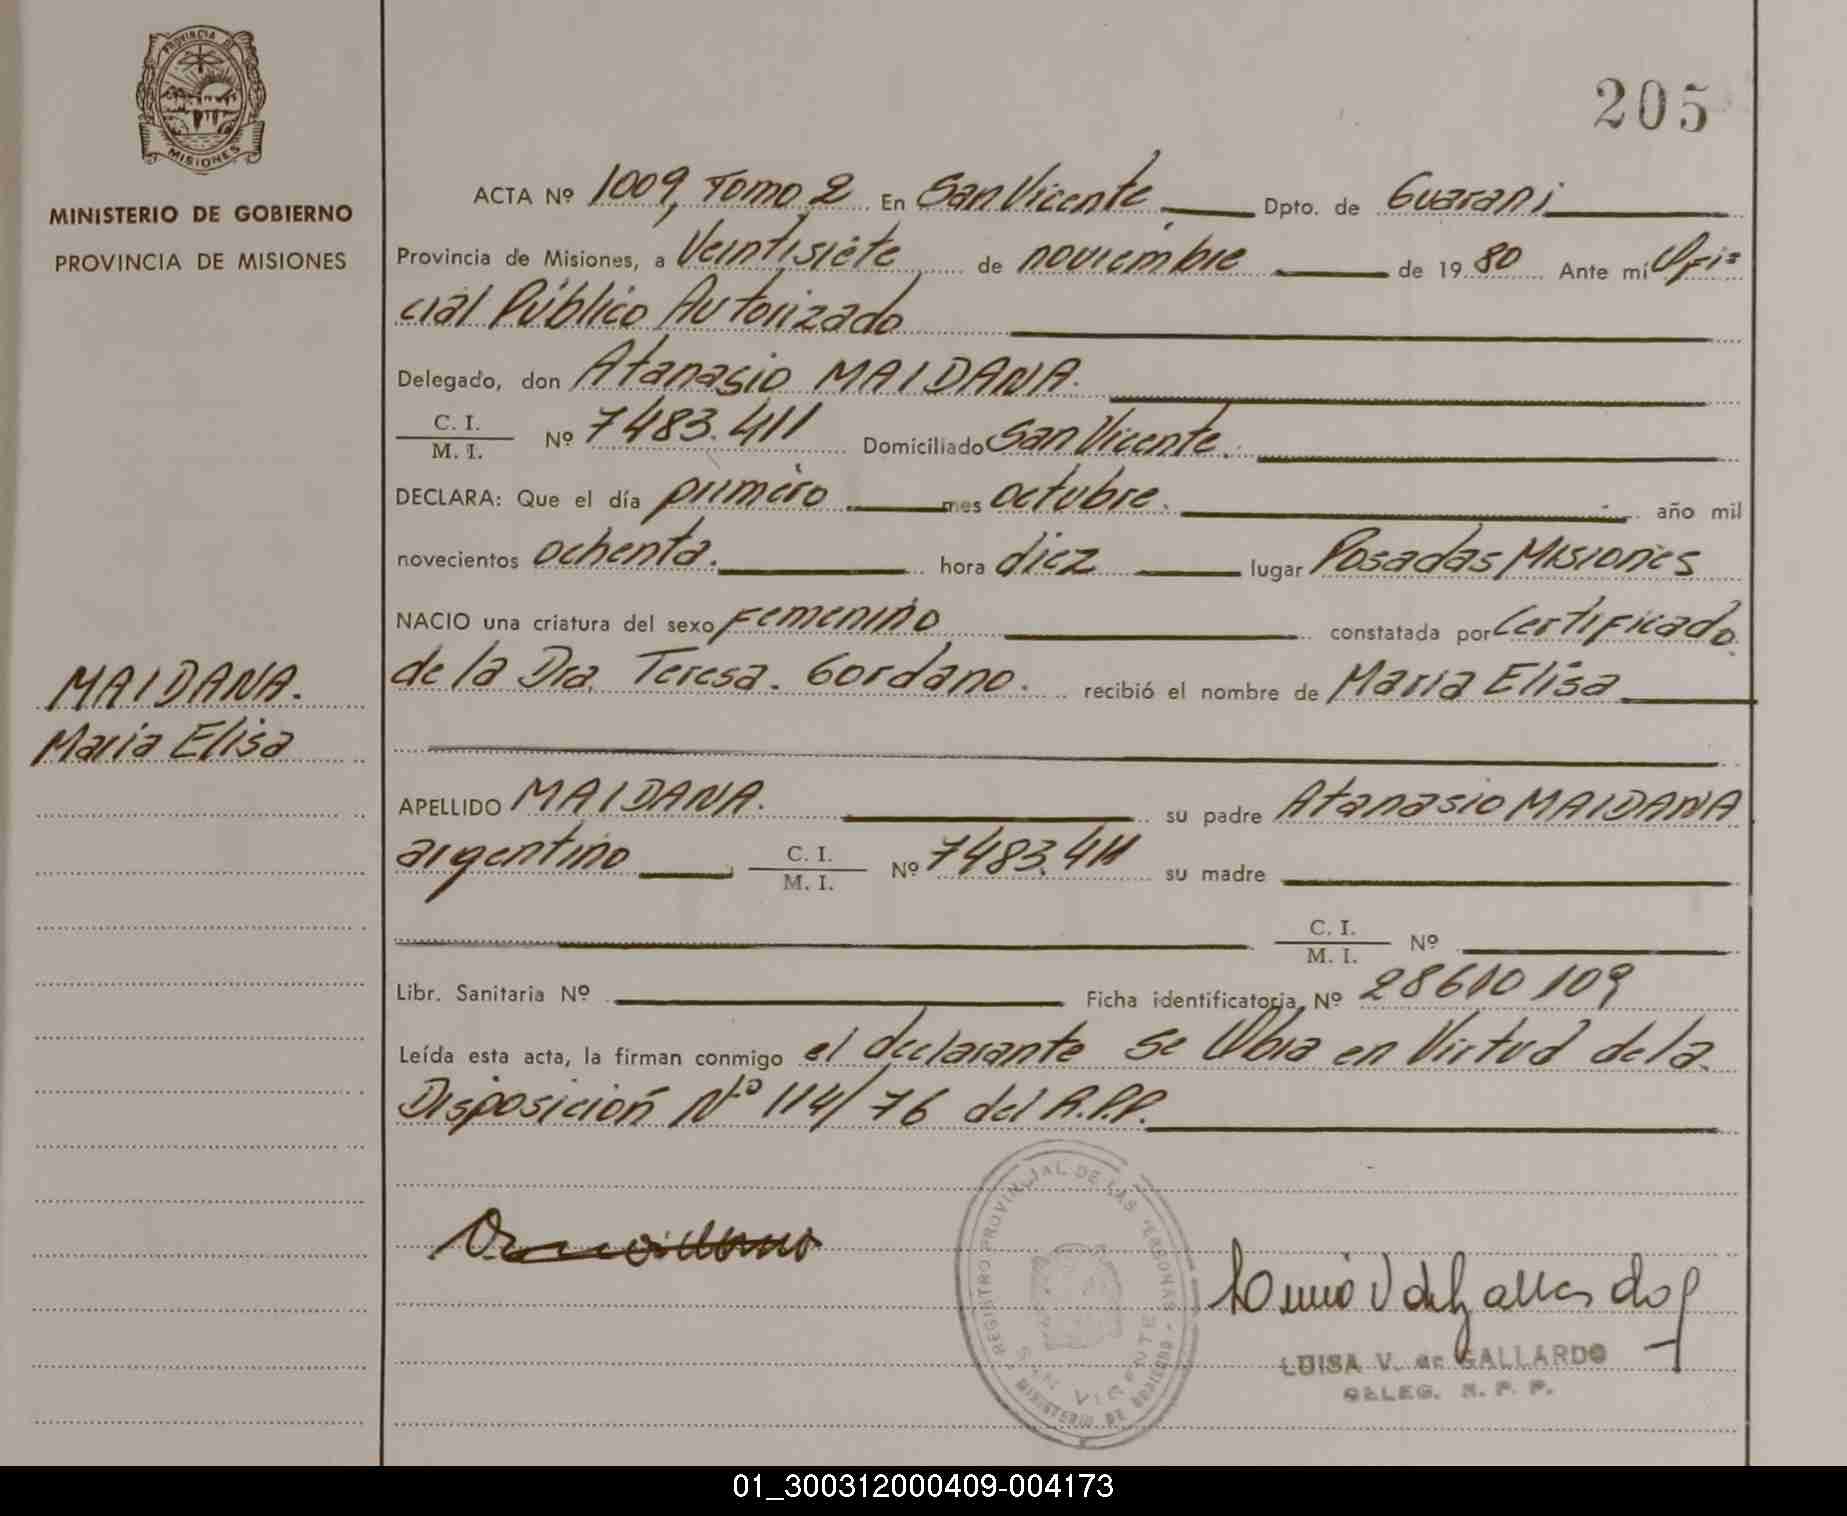 PROVINCIA DE
MISIONES
MINISTERIO DE GOBIERNO
PROVINCIA DE MISIONES
205
ACTA Nº 1009, Tomo 2 En San Vicente Dpto. de Guarani
Provincia de Misiones, a Veintisiete de noviembre de 1980 Ante mí Ofi=
cial Público Autorizado
Delegado, don Atanasio MAIDANA.
C. I.
M. I.
Nº 7483.411 Domiciliado San Vicente.
DECLARA: Que el día primero mes octubre. año mil
novecientos ochenta. hora diez lugar Posadas, Misiones
NACIO una criatura del sexo Femenino constatada por Certificado
de la Dra. Teresa. Gordano. recibió el nombre de Maria Elisa
MAIDANA.
Maria Elisa
APELLIDO MAIDANA. su padre Atanasio MAIDANA
argentino C. I.
M. I.
Nº 7483.411 su madre
C. I.
M. I.
Nº
Libr. Sanitaria Nº Ficha identificatoria, Nº 28610109
Leída esta acta, la firman conmigo el declarante se Obra en Virtud de la
Disposición Nº 114/76 del R.P.P.
REGISTRO PROVINCIAL DE LAS PERSONAS
SAN VICENTE
MINISTERIO DE GOBIERNO
LUISA V. de GALLARDO
DELEG. R. P. P.
01_300312000409-004173